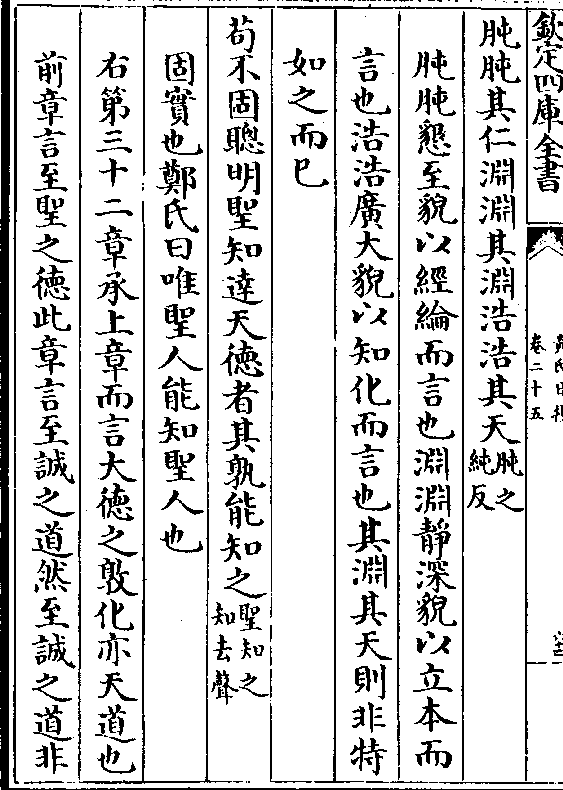 欽定四庫全書
卷二十五
肫肫其仁淵淵其淵浩浩其天肫之純反
肫肫懇至貌以經綸而言也淵淵靜深貌以立本而
言也浩浩廣大貌以知化而言也其淵其天則非特
如之而已
苟不固聰明聖知達天德者其孰能知之聖知之知去聲
固實也鄭氏曰唯聖人能知聖人也
右第三十二章承上章而言大德之敦化亦天道也
前章言至聖之德此章言至誠之道然至誠之道非